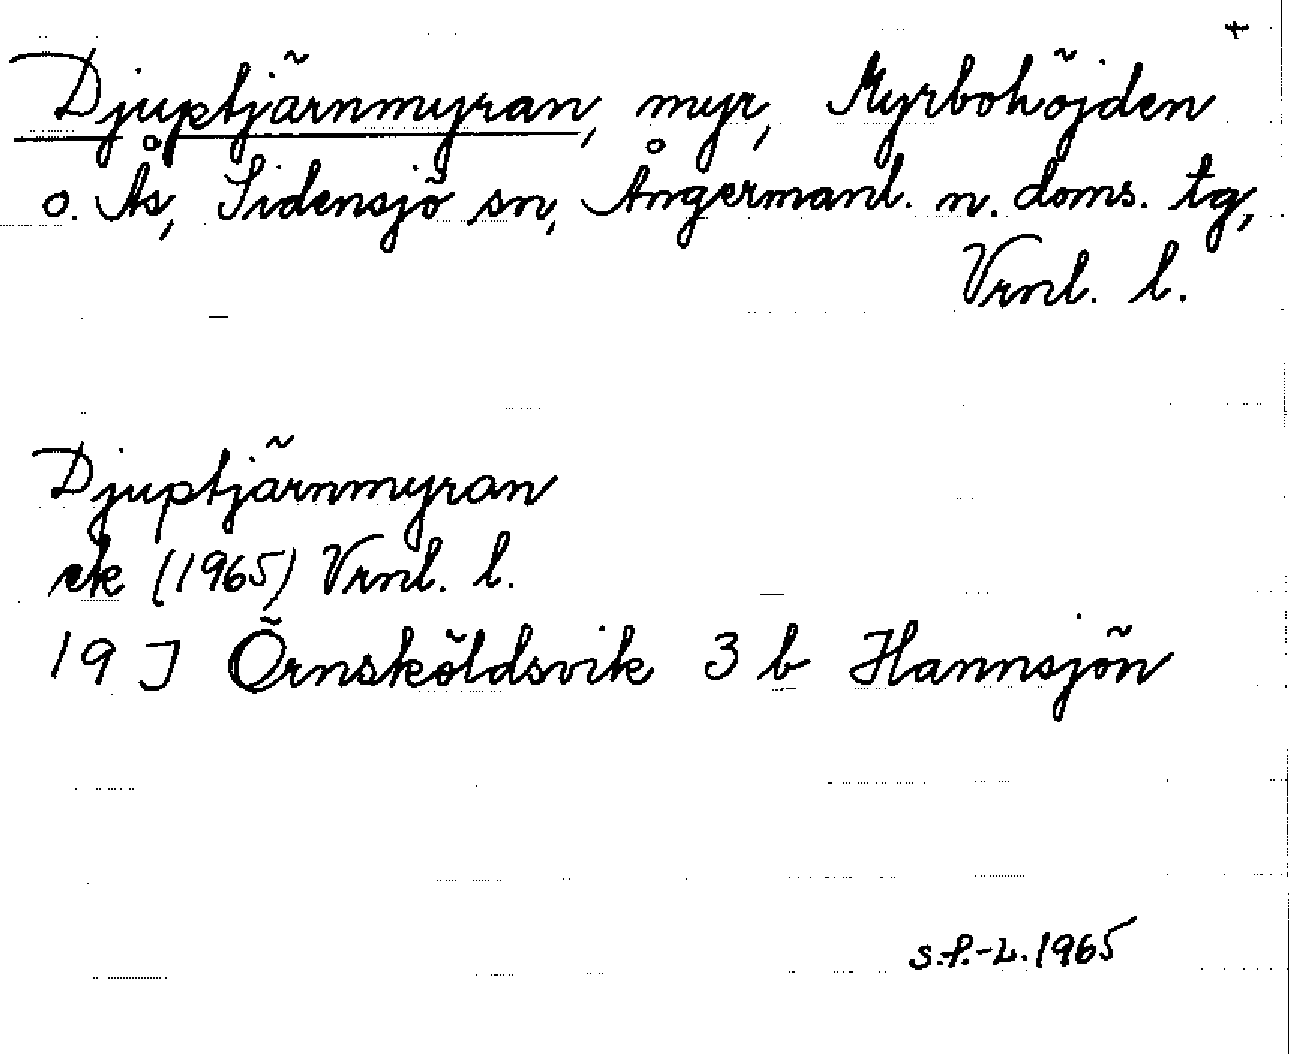 +
Djuptjärnmyran, myr, Myrbohöjden
o. Ås, Sidensjö sn, Ångermanl. n. doms. tg,
Vrnl. l.
Djuptjärnmyran
ek (1965) Vrnl. l.
19 J Örnsköldsvik 3 b Hannsjön
S.P.-L. 1965